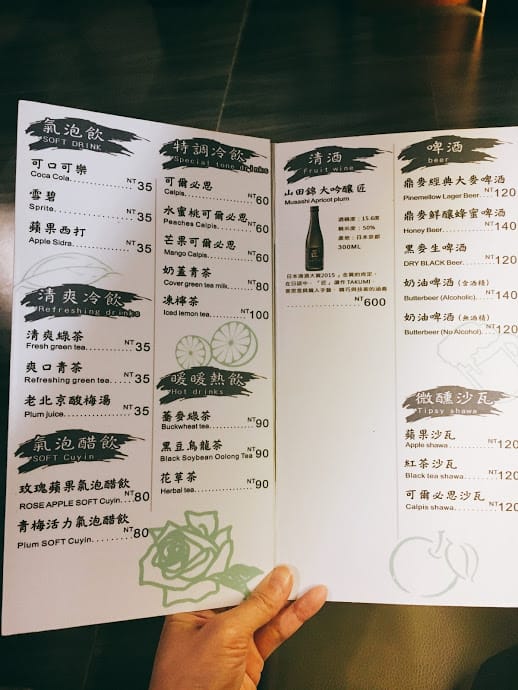 氣泡飲
SOFT DRINK
可口可樂
Coca Cola........NT35
雪碧
Sprite........NT35
蘋果西打
Apple Sidra........NT35
清爽冷飲
Refreshing drinks
清爽綠茶
Fresh green tea........NT35
爽口青茶
Refreshing green tea........NT35
老北京酸梅湯
Plum juice........NT35
氣泡醋飲
SOFT Cuyin
玫瑰蘋果氣泡醋飲
ROSE APPLE SOFT Cuyin....NT80
青梅活力氣泡醋飲
Plum SOFT Cuyin........NT80
特調冷飲
Special tone drinks
可爾必思
Calpis........NT60
水蜜桃可爾必思
Peaches Calpis........NT60
芒果可爾必思
Mango Calpis........NT60
奶蓋青茶
Cover green tea milk........NT80
凍檸茶
Iced lemon tea........NT100
暖暖熱飲
Hot drinks
蕎麥綠茶
Buckwheat tea........NT90
黑豆烏龍茶
Black Soybean Oolong Tea..NT90
花草茶
Herbal tea........NT90
清酒
Fruit wine
山田錦 大吟釀 匠
Musashi Apricot plum
酒精度:15.6度
精米度:50%
產地:日本京都
300ML
匠
日本清酒大賞2015
NT600
啤酒
beer
鼎麥經典大麥啤酒
Pinemellow Lager Beer...NT120
鼎麥鮮釀蜂蜜啤酒
Honey Beer........NT140
黑麥生啤酒
DRY BLACK Beer........NT120
奶油啤酒(含酒精)
Butterbeer (Alcoholic)....NT140
奶油啤酒(無酒精)
Butterbeer (No Alcohol)...NT120
微醺沙瓦
Tipsy shawa
蘋果沙瓦
Apple shawa........NT120
紅茶沙瓦
Black tea shawa........NT120
可爾必思沙瓦
Calpis shawa........NT120